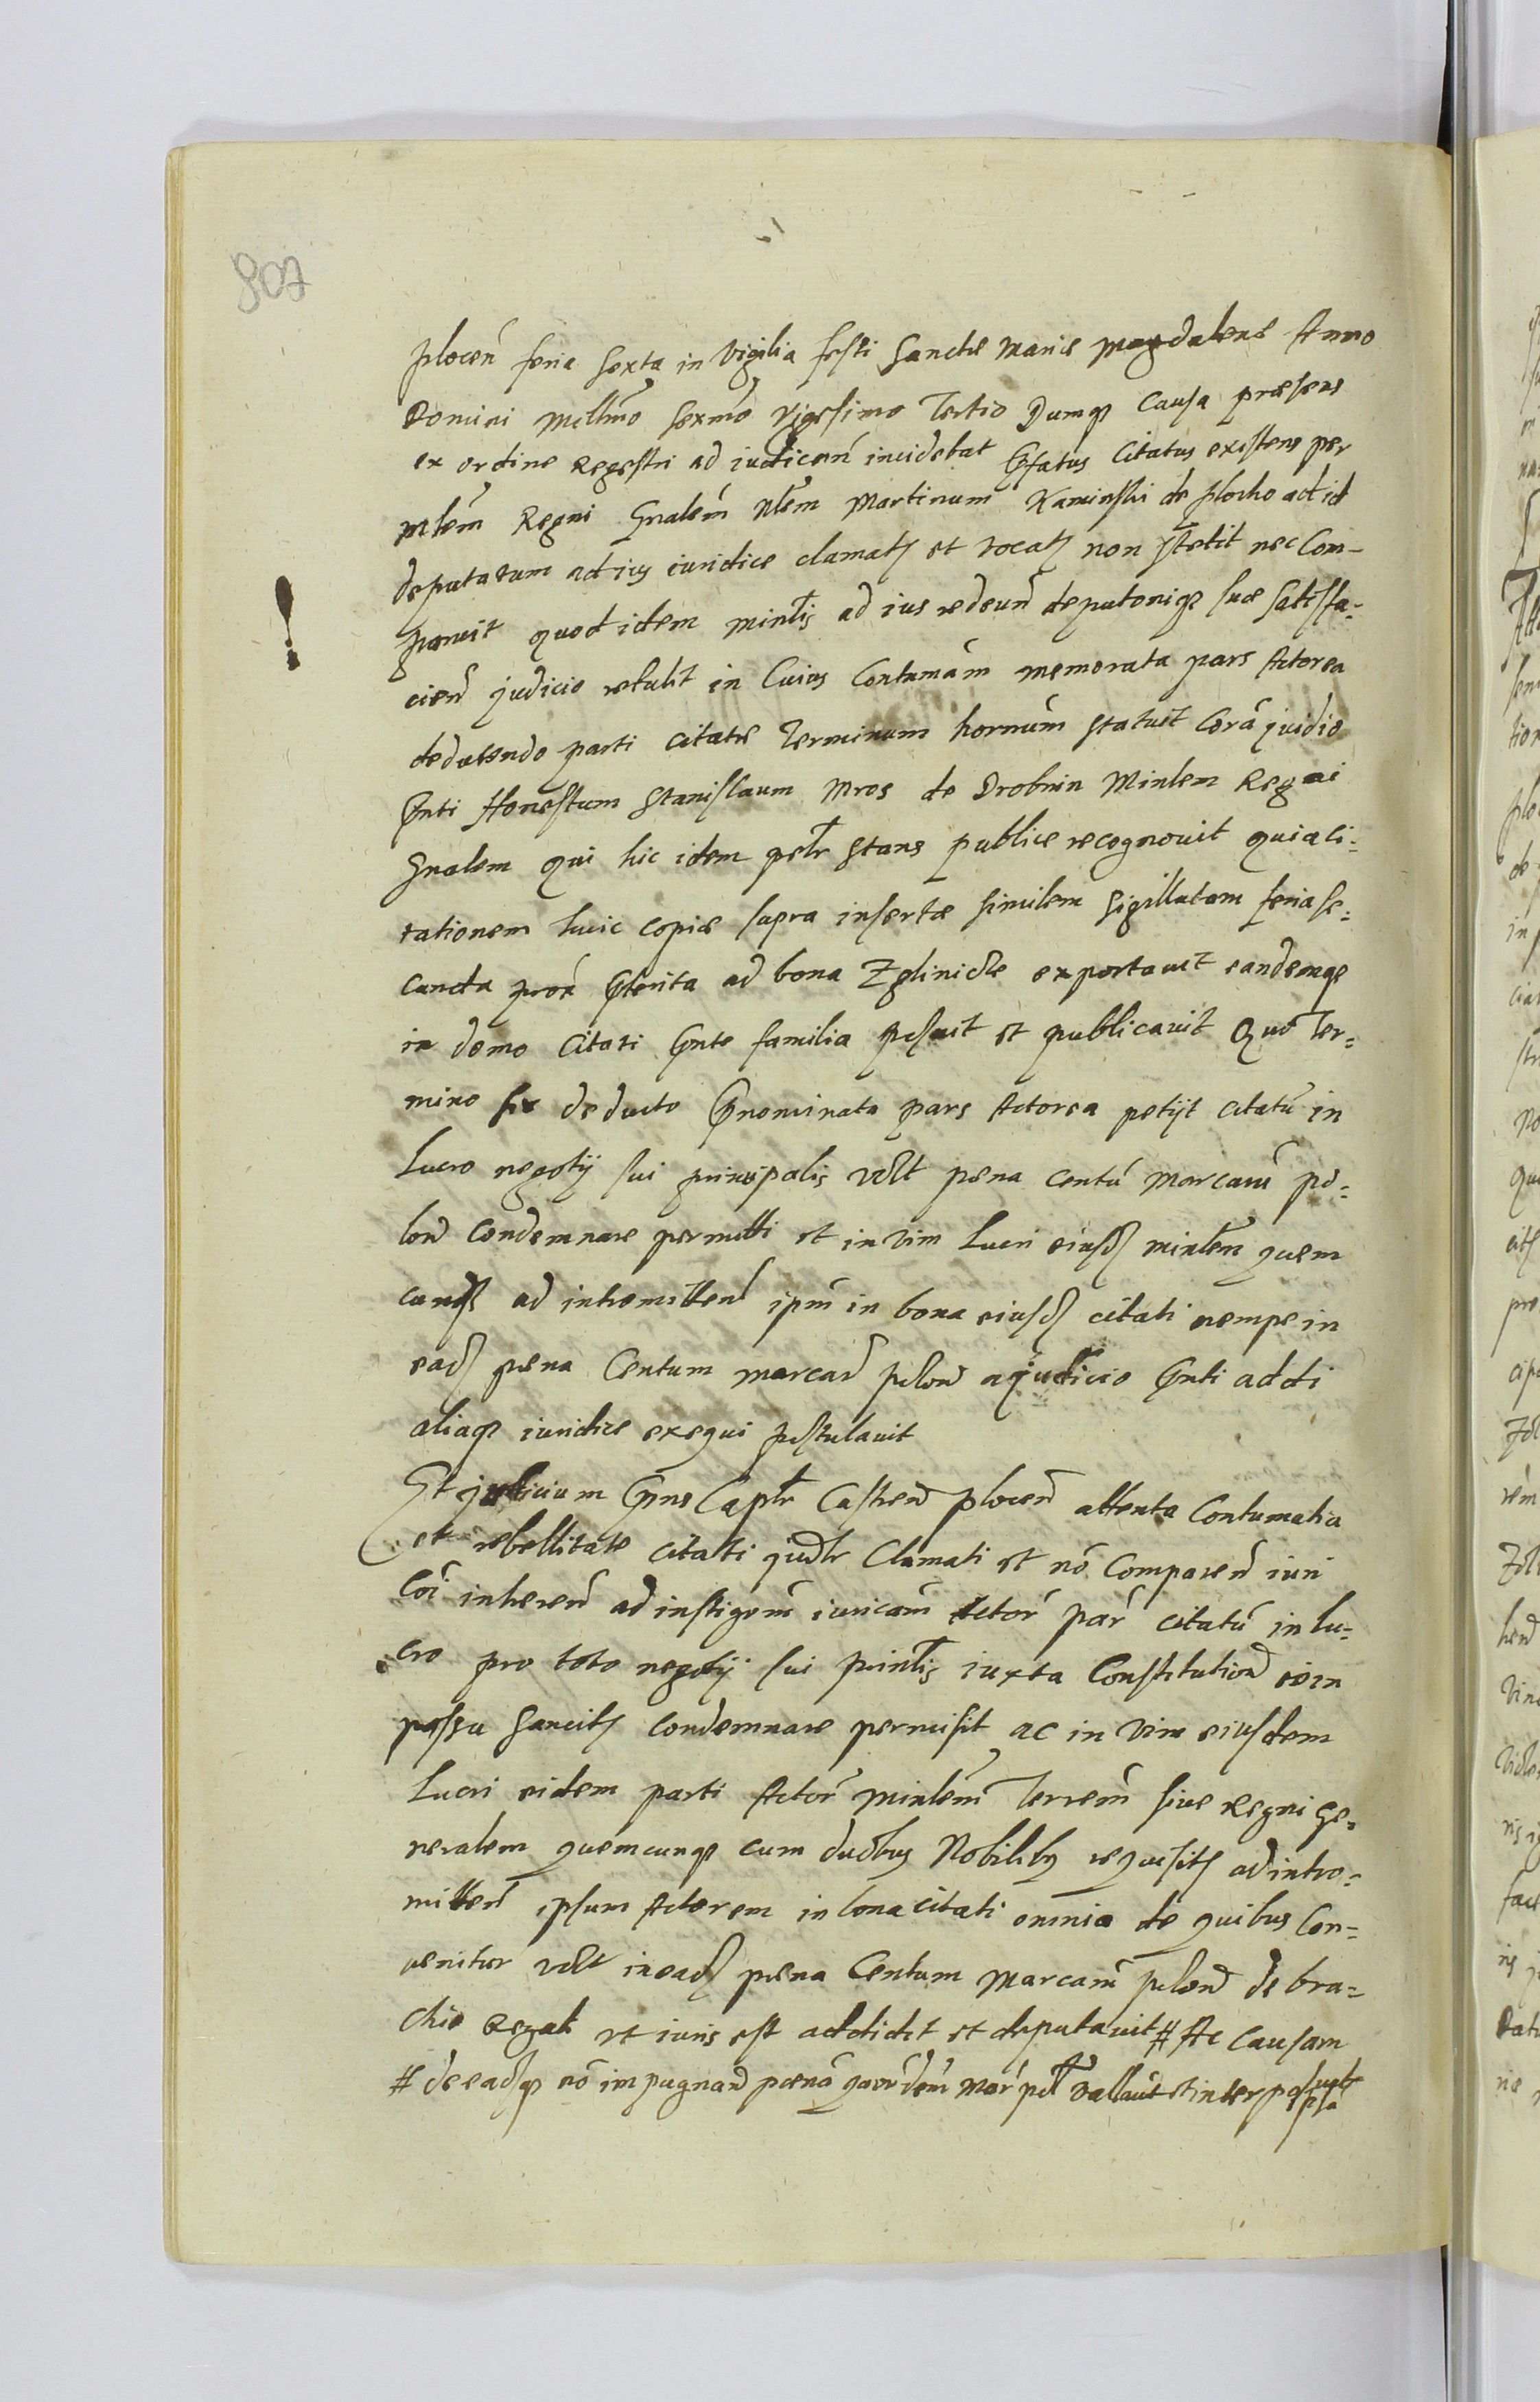 807
plocen̄ feria sexta in Vigilia festi Sanctæ Mariæ Magdalenæ Anno
Domini Millm̄o sexm̄o Vigesimo Tertio Dumqꝫ Causa præsens
ex ordine Regestri ad iudican̄ incidebat P̄fatus Citatus existens per
Mlem̄ Regni Gnalem̄ Nlem̄ Martinum Kaminski de Plocko ad id
deputatum ad ius iuridice clamatꝫ et vocatꝫ non stetit nec Com-
paruit quod idem Minlis̄ ad ius redeun̄ deputoniqꝫ suæ satisfa-
cien̄ judicio retulit in Cuius Contumām memorata pars Actorea
deducendo parti citatæ Terminum hornum̄ Statuit Corā judio
P̄nti Honestum Stanislaum Mros de Drobnin Minlem Regni
Gnalem qui hic idem pelr̄ Stans publice recognovit quia ci-
tationem huic copiæ supra insertæ similem Sigillatam feria se-
cunda prox̄ P̄terita ad bona Zglinickie exportavit eandemqꝫ
in domo Citati P̄nte familia posuit et publicavit Quo Ter-
mino sic deducto P̄nominata pars Actorea petijt citatū in
Lucro negotij sui principalis vslt pœna centū Marcarū po-
lon̄ Condemnare permitti et in vim Lucri eiusdꝫ minlem̄ quem
cunqꝫ ad intromitten̄ ipm̄ in bona eiusdꝫ citati nempe in
eadꝫ pœna Centum marcar̄ polon̄ a judicio P̄nti addi
aliaqꝫ iuridice exequi postulavit
Et judicium P̄ns Caplr̄ Castren̄ plocen̄ attenta Contumatia
et rebellitate citati judlr Clamati et nō Comparen̄ iuri
Cōi inheren̄ ad instigēm iuricām Actor̄ par̄ citatū in lu-
cro pro toto negotij sui prinlis̄ iuxta Constitution̄ eo in
passu Sancitꝫ Condemnare permisit ac in vim eiusdem
Lucri eidem parti Actor̄ Minlem̄ Terrem̄ sive Regni ge-
neralem quemcunqꝫ cum duobus Nobilibꝫ requisitꝫ ad intro-
mitten̄ ipsum Actorem in bona citati omnia de quibus Con-
venitur vslt in eadꝫ pœna Centum Marcarū polon̄ de bra-
chio Regali ut iuris est addidit et deputavit # Ac Causam
# de eadꝫqꝫ nō impugnan̄ pœnā